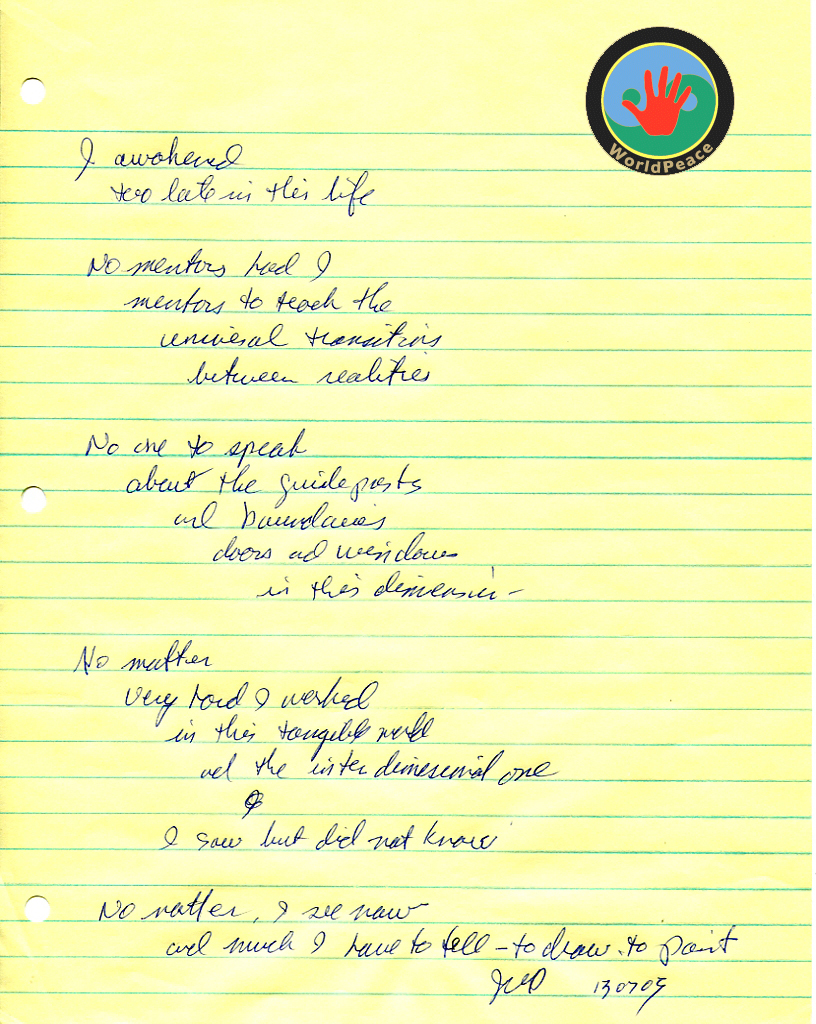 WorldPeace
I awakened
too late in this life
No mentors had I
mentors to teach the
universal transitions
between realities
No one to speak
about the guideposts
and boundaries
doors and windows
in this dimension
No matter
very hard I worked
in this tangible world
and the interdimensional one
I saw but did not know
No matter, I see now
and much I have to tell - to draw. to paint
130705